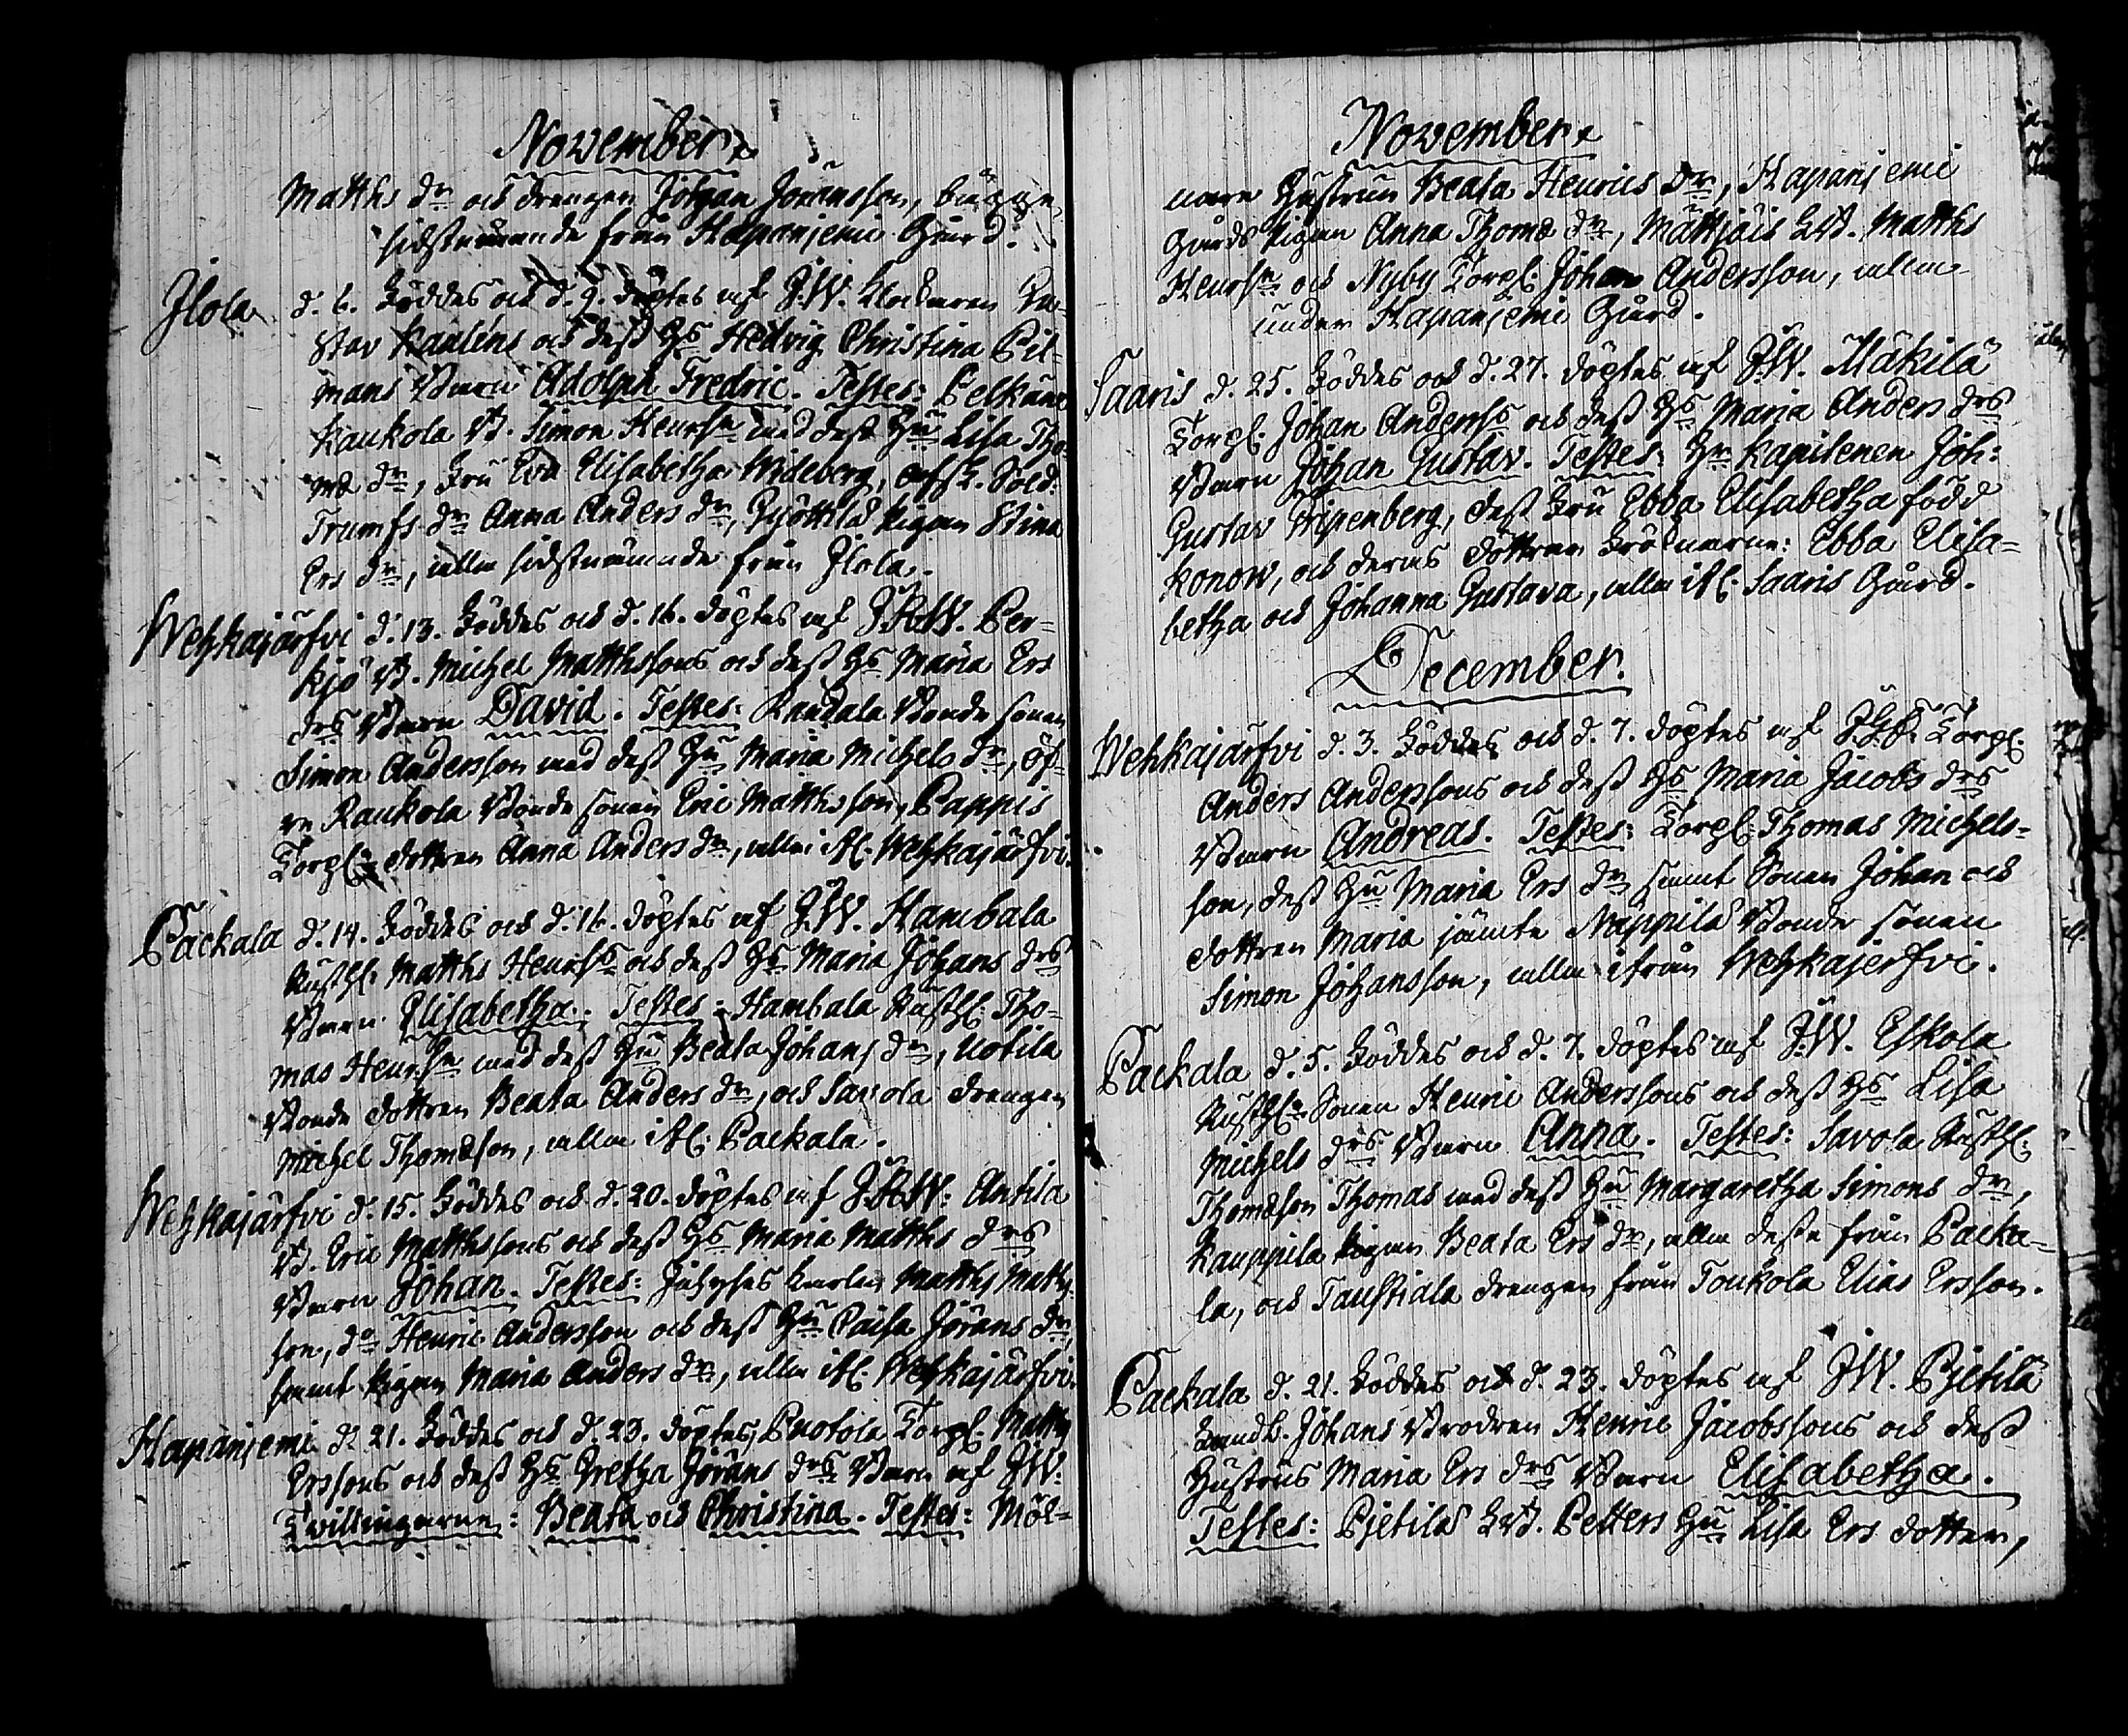 November
Matths dr och drengen Johan Jöransson, bägge
sidstnämnde från Hapanjemi Gård.
Ilola d. 6. Föddes och d. 9. döptes af J.W. Klockaren Gu-
stav Kauléns och dess Hs Hedvig Christina Pil-
mans Barn Adolph Fredric. Testes: Pelkäne
Kaukola B. Simon Henrsn med dess Hu Lisa Tho-
mæ dr, Fru Eva Elisabetha Wideberg, Afsk. Sold.
Trumfs dr Anna Anders dr, Hyöttilä pigan Stina
Ers dr, alla sidstnämnde från Ilola.
Wehkajärfvi d. 13. Föddes och d. 16. döptes af Per-
kjö B. Michel Matthssons och dess Hs Maria Ers
drs Barn David. Testes: Randala Bonde sonen
Simon Andersson med dess Hu Maria Michels dr, Öf-
re Raukola Bonde sonen Eric Matthsson, Pappis
Torp: dottren Anna Anders dr, alla ifr: Wehkajärfvi.
Packala d. 14. Föddes och d. 16. döptes af J.W. Hambala
Rusth: Matths Henrss och dess Hs Maria Johans drs
Barn Elisabetha. Testes: Hambala Rusth: Tho-
mas Henrsn med dess Hu Beata Johans dr, Uotila
Bonde dottren Beata Anders dr, och Savola drengen
Michel Thomæson, alla ifr: Packala.
Wehkajärfvi d. 15. Föddes och d. 20. döptes af Antila
B. Eric Matthssons och dess Hs Maria Matths drs
Barn Johan. Testes: Inhyses karlen Matths Matths-
son, do Henric Andersson och dess Hu Caisa Jörans dr,
samt pigan Maria Anders dr, alla ifr: Wehkajärfvi.
Hapanjemi d. 21. Föddes och d. 23. döptes, Puotola Torp: Matths
Erssons och dess Hs Gretha Jörans drs Barn af J.W.
Tvillingarne: Beata och Christina. Testes: Möl-
November
nare Hustrun Beata Henrics dr, Hapanjemi
Gårds pigan Anna Thomæ dr, Mattjäis Matths
Henrsn och Nyby Torp: Johan Andersson, alla
under Hapanjemi Gård.
Saaris d. 25. Föddes och d. 27. döptes af J.W. Mäkilä
Torp: Johan Anderss och dess Hs Maria Anders drs
Barn Johan Gustav. Testes: Hr Kapitenen Joh:
Gustav Wipenberg, dess Fru Ebba Elisabetha född
Konow, och deras döttrar Fröknarne: Ebba Elisa-
betha och Johanna Gustava, alla ifr: Saaris Gård.
December.
Wehkajärfvi d. 3. Föddes och d. 7. döptes af Torp:
Anders Anderssons och dess Hs Maria Jacobs drs
Barn Andreas. Testes: Torp: Thomas Michels-
son, dess Hu Maria Ers dr samt Sonen Johan och
dottren Maria jämte Näppilä Bonde sonen
Simon Johansson, alla ifrån Wehkajerfvi.
Packala d. 5. Föddes och d. 7. döptes af J.W. Eskola
Rusth: Sonen Henric Anderssons och dess Hs Lisa
Michels drs Barn Anna. Testes: Savola Rusth:
Thomæson Thomas med dess Hu Margaretha Simons dr,
Kauppila pigan Beata Ers dr, alla desse från Packa-
la, och Taustiala drengen från Toukola Elias Ersson.
Packala d. 21. Föddes och d. 23. döptes af J.W. Pjetilä
Landb. Johans Brodren Henric Jacobssons och dess
Hustrus Maria Ers drs Barn Elisabetha.
Testes: Pjetilä Petters Hu Lisa Ers dotter,